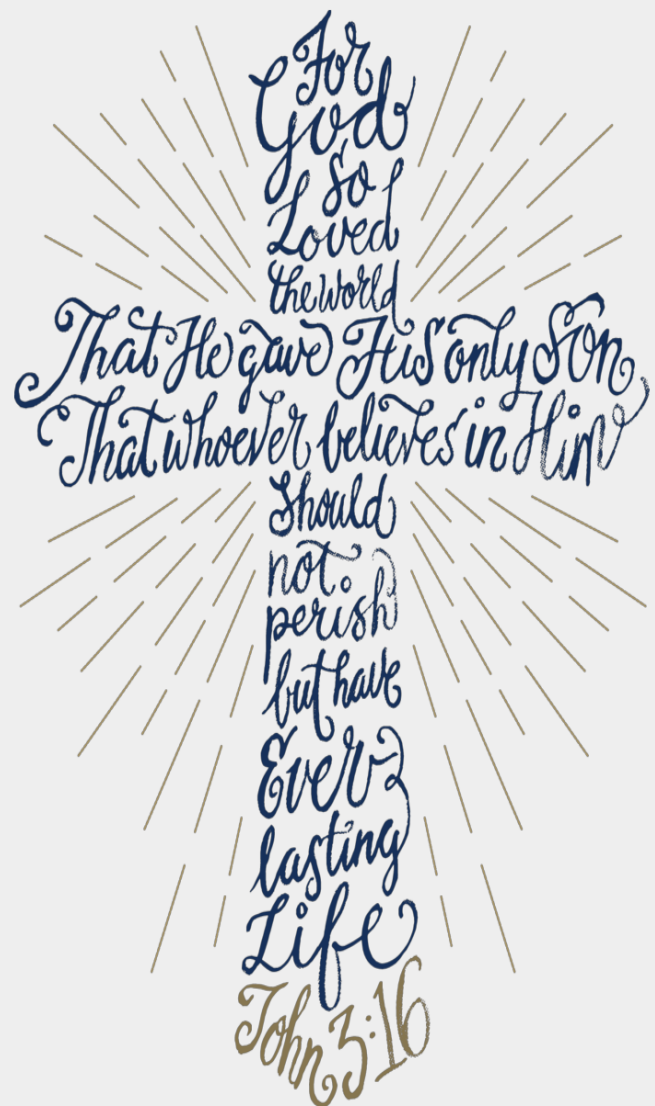 For
God
So
Loved
the world
That He gave His only Son
That whoever believes in Him
Should
not
perish
but have
Ever
lasting
Life
John 3:16